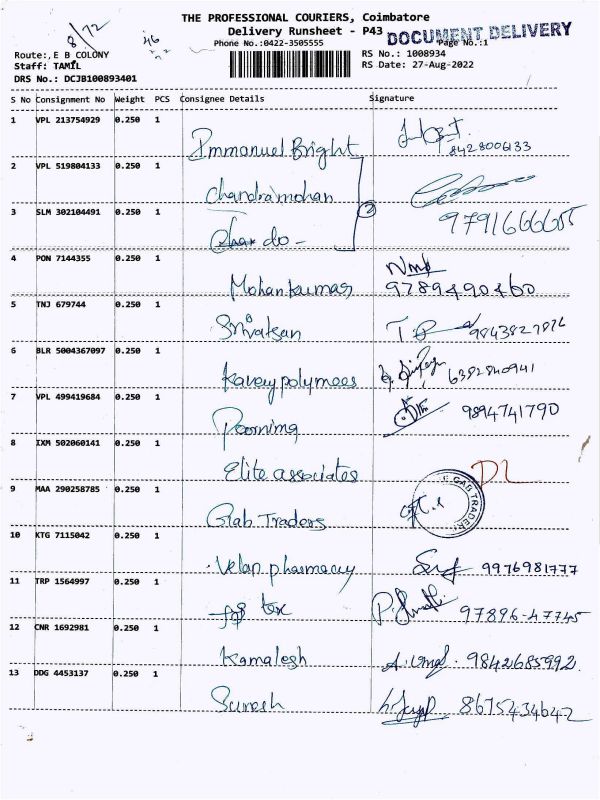 8/72
46
THE PROFESSIONAL COURIERS, Coimbatore
Delivery Runsheet - P43
DOCUMENT DELIVERY
Phone No.:0422-3505555
Page No.:1
Route:,E B COLONY
RS No.: 1008934
Staff: TAMIL
RS Date: 27-Aug-2022
DRS No.: DCJB100893401
S No Consignment No Weight PCS Consignee Details Signature
1 VPL 213754929 0.250 1
Immanuel Bright 8428006133
2 VPL 519804133 0.250 1
Chandramohan
3 SLM 302104491 0.250 1
2 9791666655
do -
4 PON 7144355 0.250 1
Mohankumar 9789490460
5 TNJ 679744 0.250 1
Srivatsan
6 BLR 5004367097 0.250 1
Kavery polymers 6382840941
7 VPL 499419684 0.250 1
Poornima 9894741790
8 IXM 502060141 0.250 1
Elite associates DL
9 MAA 290258785 0.250 1
Grab Traders GAB TRADERS
10 KTG 7115042 0.250 1
Velan pharmacy 9976981777
11 TRP 1564997 0.250 1
tex 97896-47745
12 CNR 1692981 0.250 1
Kamalesh 9842685992
13 DDG 4453137 0.250 1
Suresh 8675434642